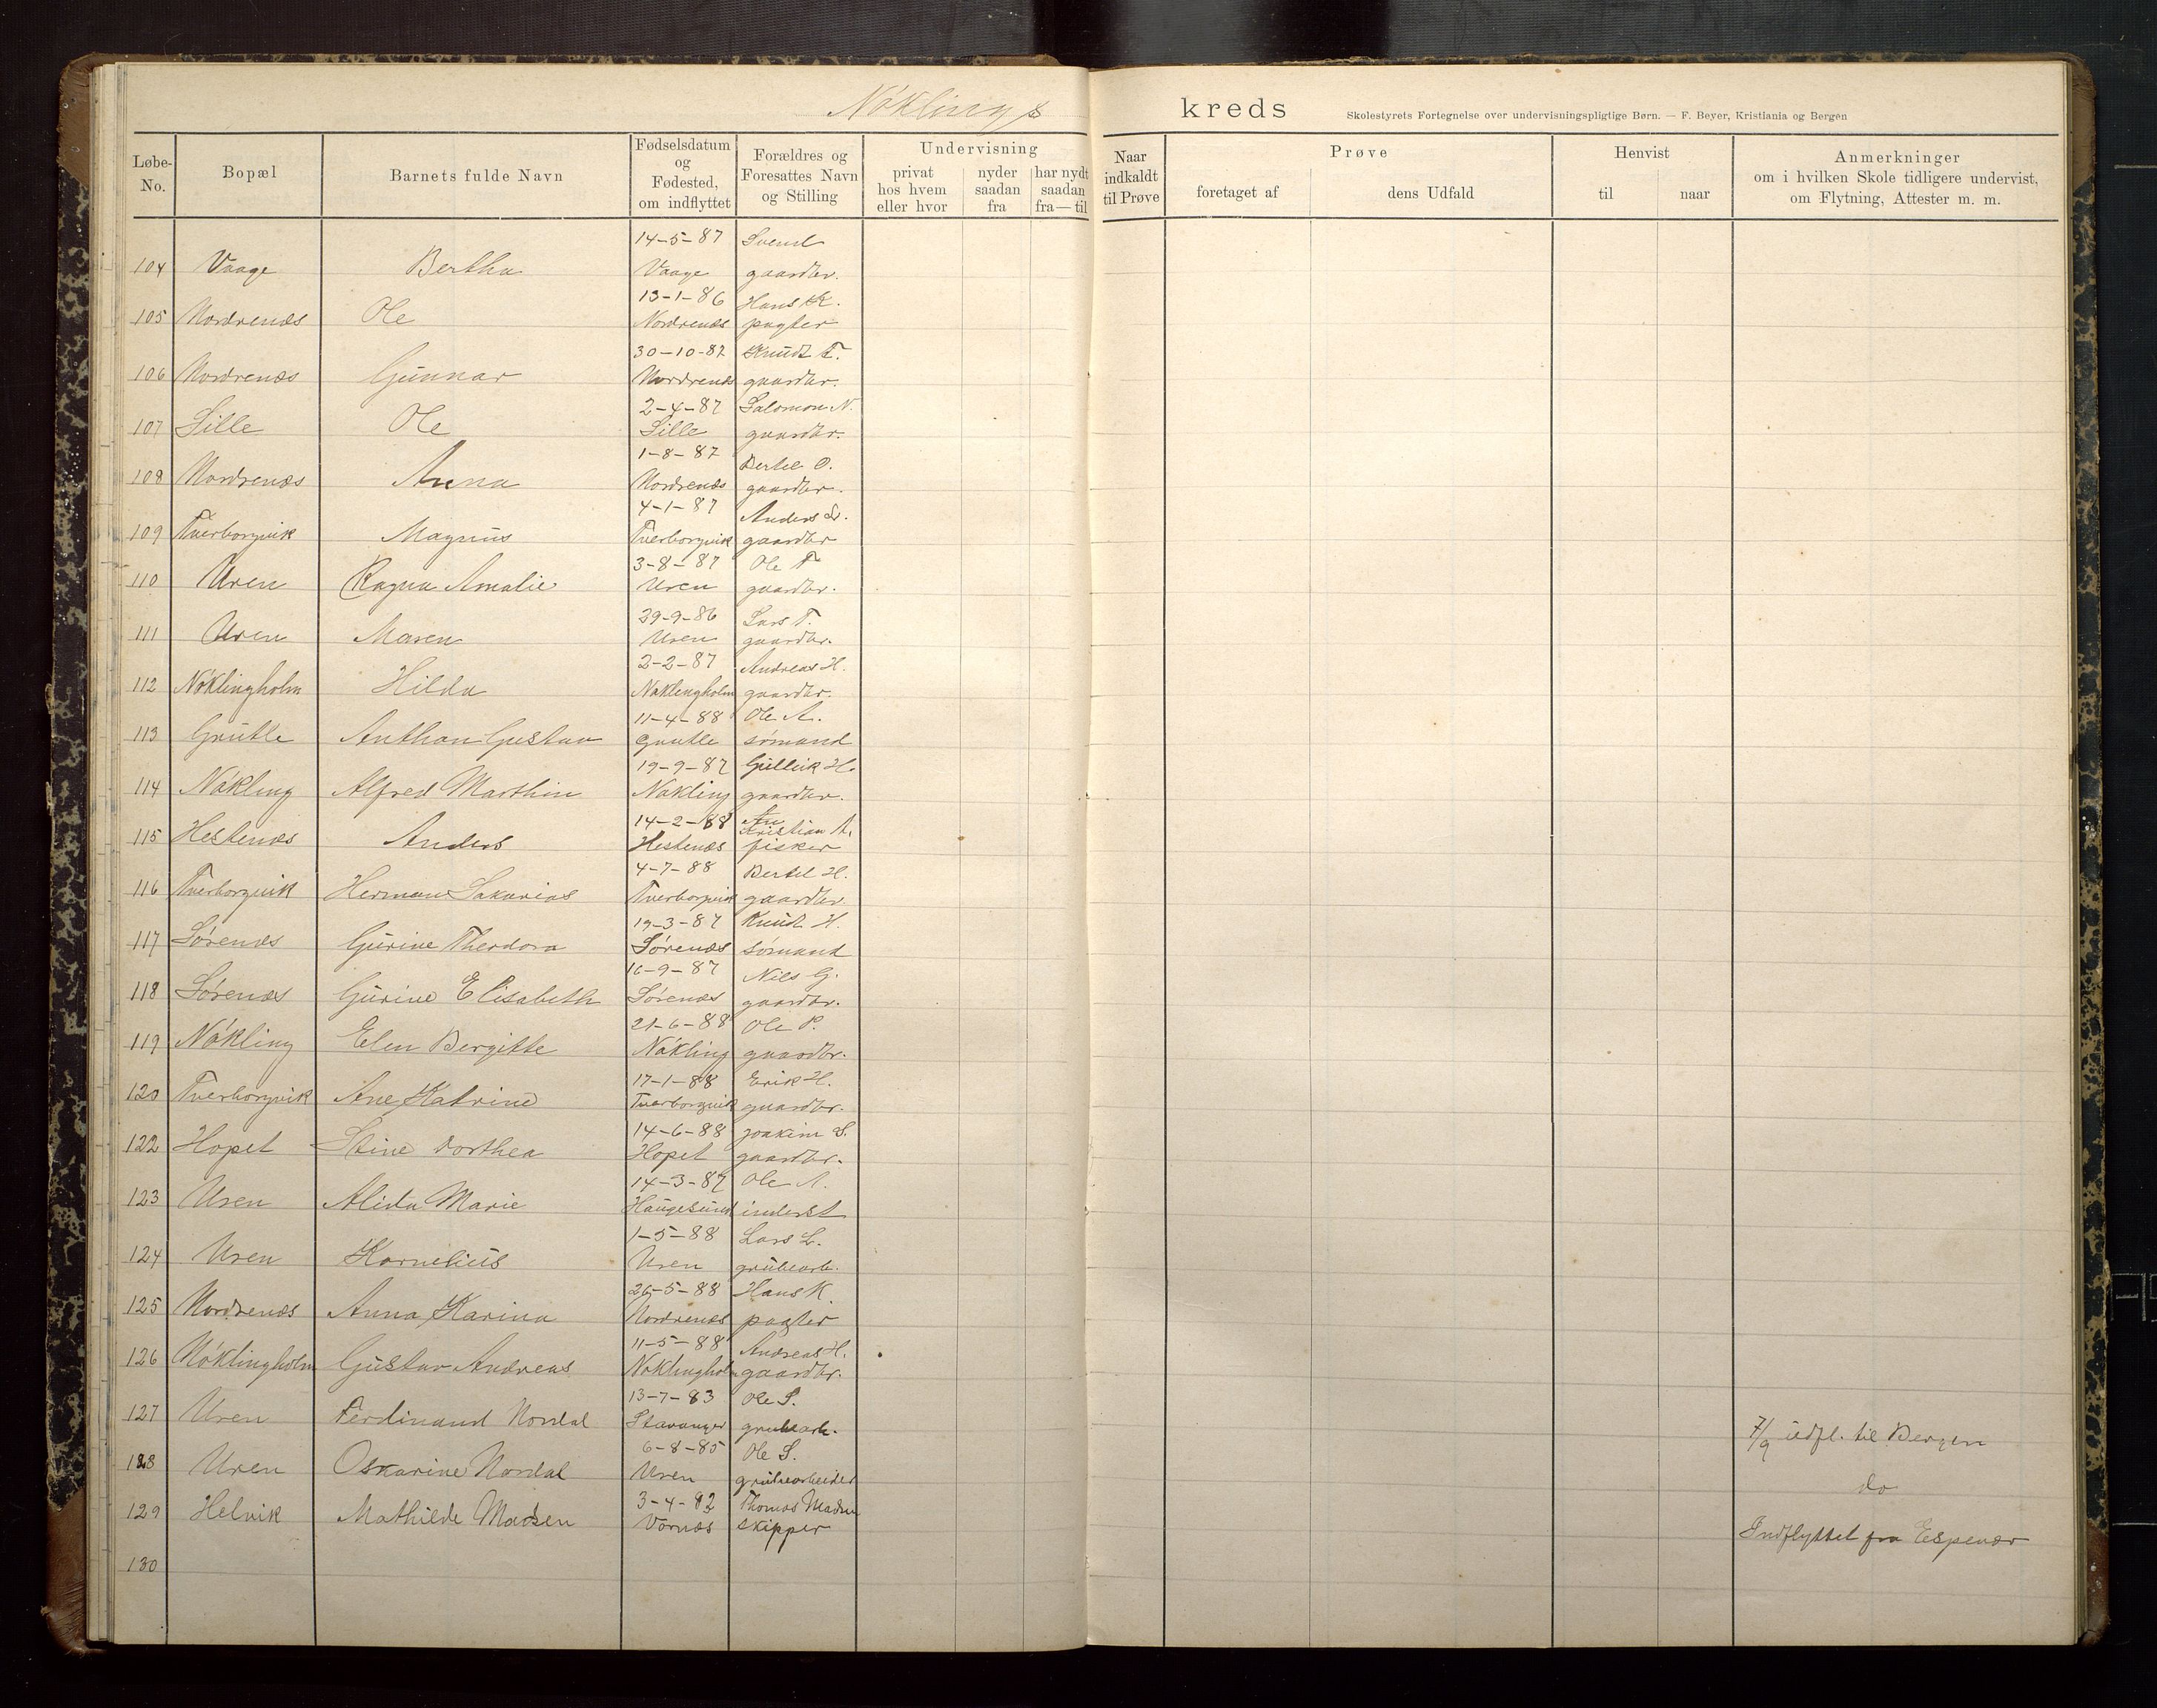 Nøklings kreds
Skolestyrets Fortegnelse over undervisningspligtige Børn. — F. Beyer, Kristiania og Bergen
Løbe-No. Bopæl Barnets fulde Navn Fødselsdatum og Fødested, om indflyttet Forældres og Foresattes Navn og Stilling Undervisning privat hos hvem eller hvor nyder saadan fra har nydt saadan fra — til Naar indkaldt til Prøve Prøve foretaget af dens Udfald Henvist til naar Anmerkninger om i hvilken Skole tidligere undervist, om Flytning, Attester m. m.
14-5-87 Svend
104 Vaage Bertha Vaage gaardbr.
13-1-86 Hans K.
105 Nordrenæs Ole Nordrenæs pagter
30-10-87 Knudt T.
106 Nordrenæs Gunnar Nordrenæs gaardbr.
2-4-87 Salomon N.
107 Lille Ole Lille gaardbr.
1-8-87 Bertel O.
108 Nordrenæs Anna Nordrenæs gaardbr.
4-1-87 Anders L.
109 Tverborgvik Magnus Tverborgvik gaardbr
3-8-87 Ole T
110 Uren Ragna Amalie Uren gaardbr.
29-9-86 Lars T.
111 Uren Maren Uren gaardbr.
2-2-87 Andreas H.
112 Nøklingholm Hilda Nøklingholm gaardbr.
11-4-88 Ole A.
113 Grutle Anthon Gustav Grutle sømand
19-9-87 Gullik H.
114 Nøkling Alfred Marthin Nøkling gaardbr.
14-2-88 Kristian A.
115 Hestenæs Anders Hestenæs fisker
4-7-88 Bertel H.
116 Tverborgvik Herman Sakarias Tverborgvik gaardbr
19-3-87 Knut H.
117 Sørenæs Gurine Theodora Sørenæs sømand
16-9-87 Nils G.
118 Sørenæs Gurine Elisabeth Sørenæs gaardbr.
21-6-88 Ole P.
119 Nøkling Elen Bergitte Nøkling gaardbr.
17-1-88 Erik H.
120 Tverborgvik Ane Katrine Tverborgvik gaardbr.
14-6-88 Joakim S.
122 Hopet Stine Dorthea Hopet gaardbr.
14-3-87 Ole A.
123 Uren Alida Marie Haugesund inderst
1-5-88 Lars L.
124 Uren Kornelius Uren grubearb.
26-5-88 Hans K.
125 Nordrenæs Anna Karina Nordrenæs pagter
11-5-88 Andreas H.
126 Nøklingholm Gustav Andreas Nøklingholm gaardbr.
13-7-83 Ole S.
127 Uren Ferdinand Nordal Stavanger grubearb. 7/9 udfl. til Bergen
6-8-85 Ole S.
128 Uren Oskarine Nordal Uren grubearbeider do
3-4-82 Thomas Madsen
129 Helvik Mathilde Madsen Vornæs skipper Indflyttet fra Espevær
130